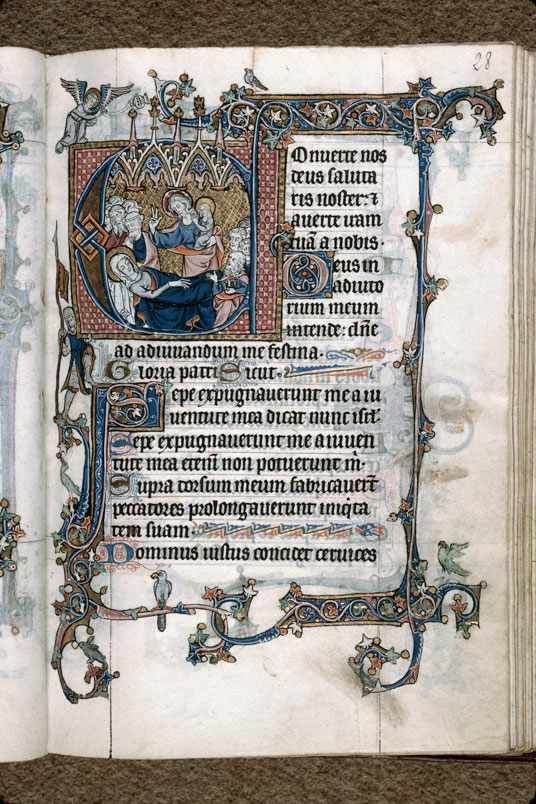 28
Onuerte nos
deus saluta
ris noster: &
auerte iram
tuā a nobis.
Deus in
adiuto
rium meum
intende: dn̄e
ad adiuuandum me festina.
Gloria patri Sicut.
Sepe expugnauerunt me a iu
uentute mea dicat nunc isr̄l.
Sepe expugnauerunt me a iuuen
tute mea etenim non potuerunt m̄.
Supra dorsum meum fabricauerūt
peccatores prolongauerunt iniqita
tem suam.
Dominus iustus concidet ceruices